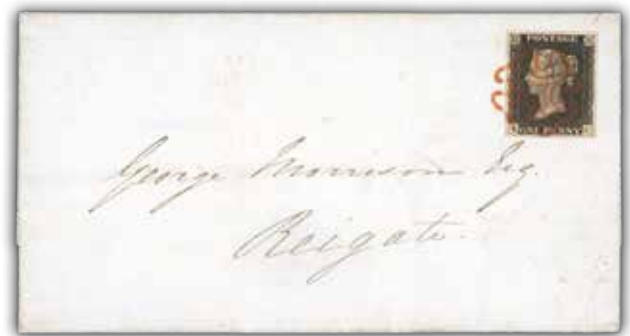 POSTAGE
ONE PENNY
George Morrison Esq.
Reigate.